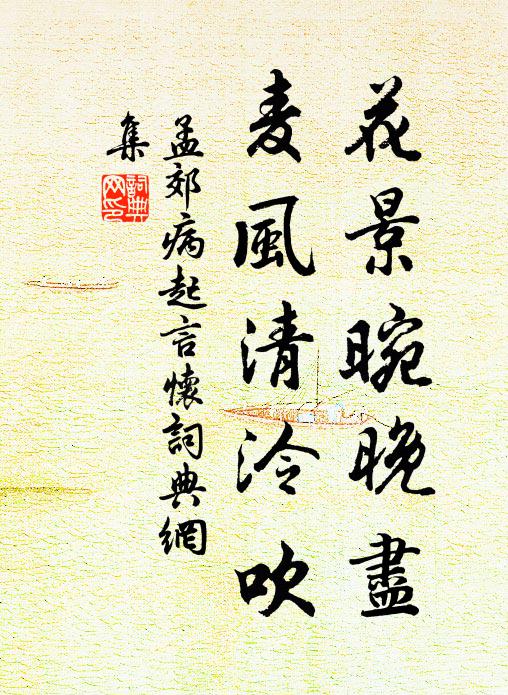 花景晼晚盡
麦風清泠吹
孟郊病起言懷詞典網
集
詞典
网印